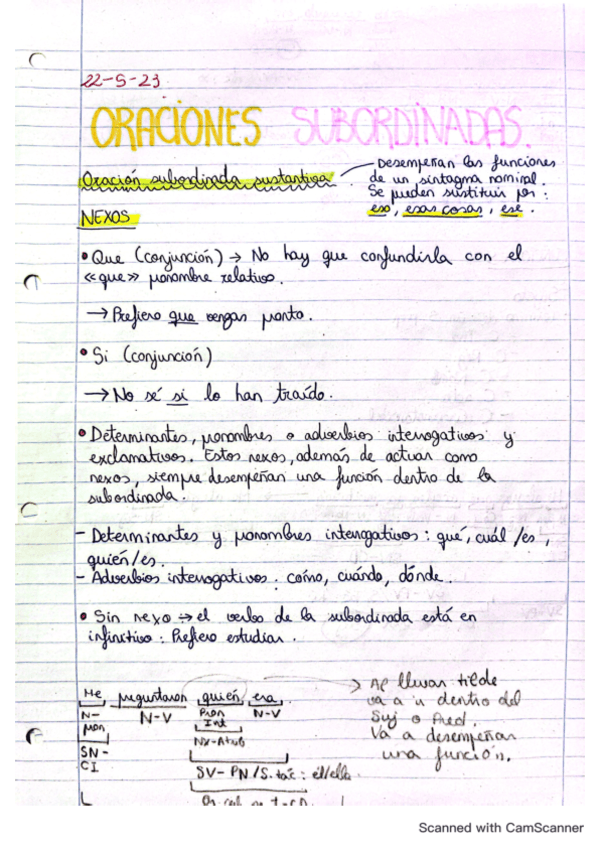 22-5-23
ORACIONES SUBORDINADAS.
Oración subordinada sustantiva
Desempeñan las funciones
de un sintagma nominal.
Se pueden sustituir por:
eso, esas cosas, ese.
NEXOS
• Que (conjunción) → No hay que confundirla con el
«que» pronombre relativo.
→ Prefiero que vengas pronto.
• Si (conjunción)
→ No sé si lo han traído.
• Determinantes, pronombres o adverbios interrogativos y
exclamativos. Estos nexos, además de actuar como
nexos, siempre desempeñan una función dentro de la
subordinada.
- Determinantes y pronombres interrogativos: qué, cuál/es,
quién/es.
- Adverbios interrogativos: cómo, cuándo, dónde.
• Sin nexo → el verbo de la subordinada está en
infinitivo: Prefiero estudiar.
Me preguntaron quién era.
→ Al llevar tilde
va a ir dentro del
Suj o Pred.
Va a desempeñar
una función.
N- N-V Pron N-V
Pron Int
SN- NX-Atrib
CI SV-PN/S.tác: él/ella